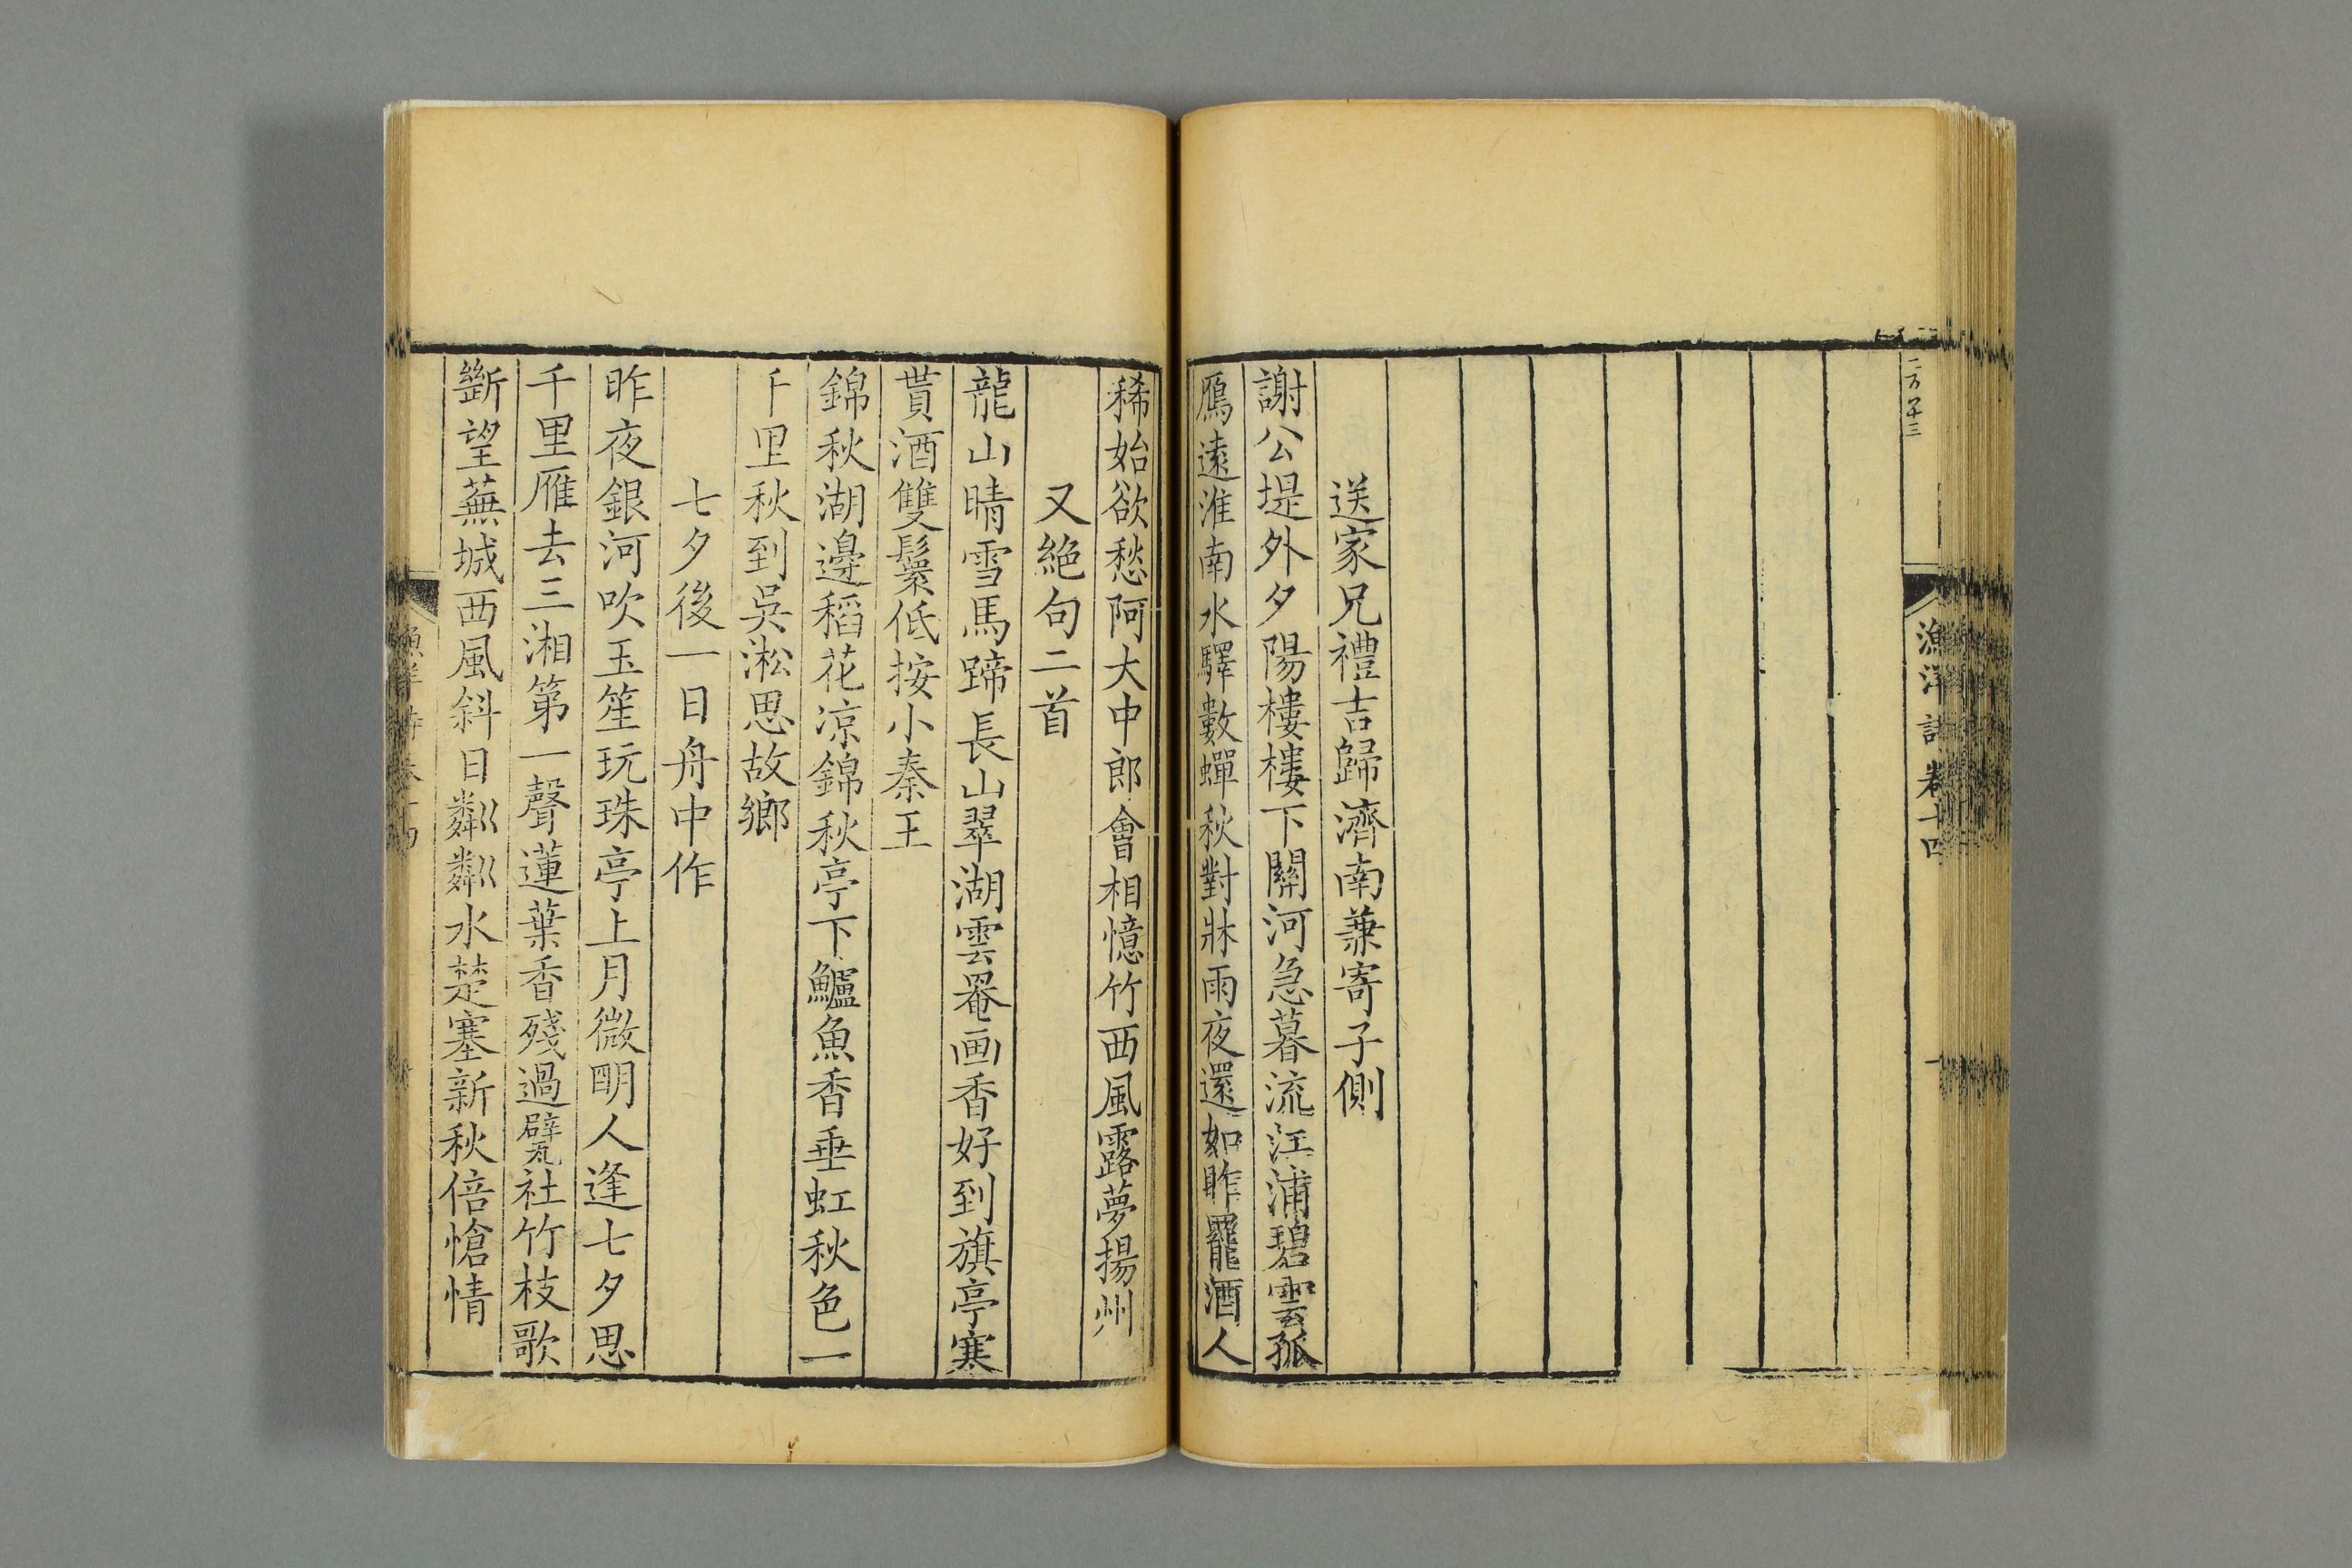 漁洋詩卷十四
送家兄禮吉歸濟南兼寄子側
謝公堤外夕陽樓樓下關河急暮流江浦碧雲孤
鴈遠淮南水驛數蟬秋對牀雨夜還如昨罷酒人
稀始欲愁阿大中郎會相憶竹西風露夢揚州
又絶句二首
龍山晴雪馬蹄長山翠湖雲罨画香好到旗亭寒
貰酒雙鬟低按小秦王
錦秋湖邊稻花凉錦秋亭下鱸魚香垂虹秋色一
千里秋到吳淞思故鄉
七夕後一日舟中作
昨夜銀河吹玉笙玩珠亭上月微明人逢七夕思
千里雁去三湘第一聲蓮葉香殘過甓社竹枝歌
斷望蕪城西風斜日粼粼水楚塞新秋倍愴情